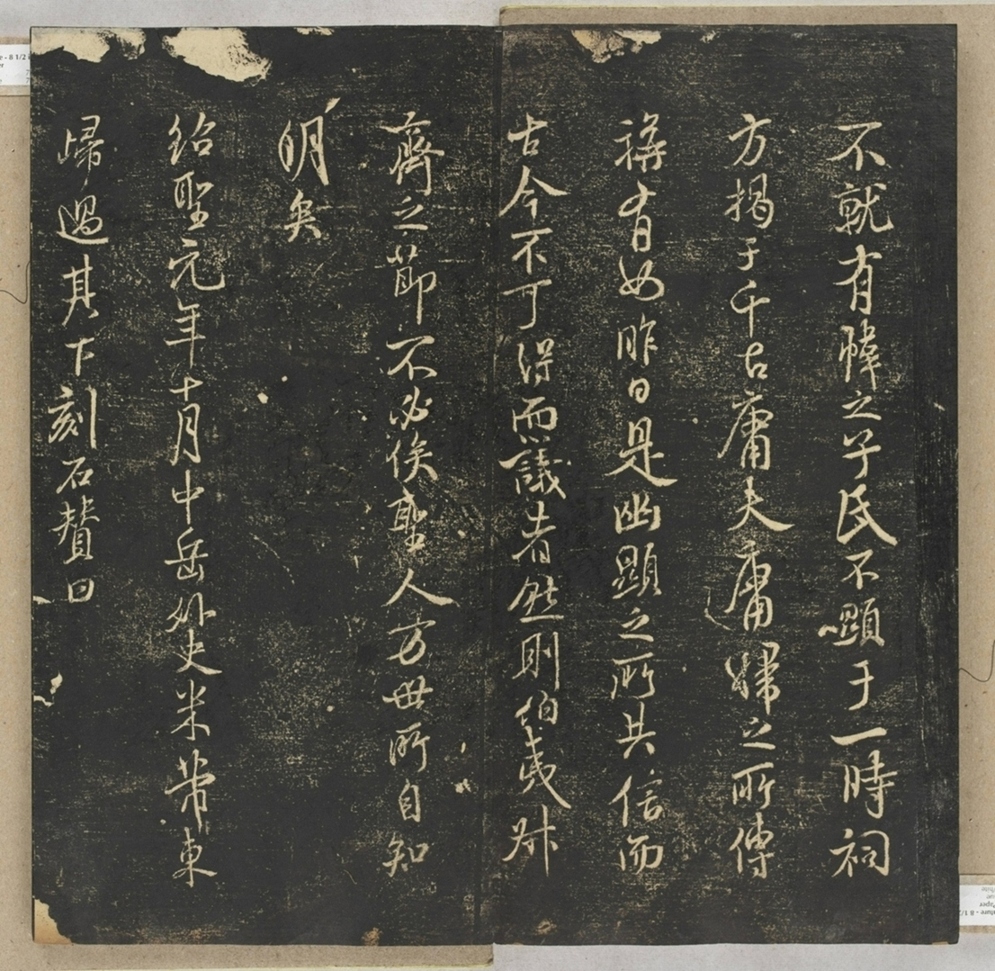 不就有幃之乎民不顯于一時祠
方揭于千古庸夫庸婦之所傳
稱有如昨日是幽顯之所共信而
古今不可得而議者然則伯夷叔
齊之節不必俟聖人方世所自知
明矣
紹聖元年十月中岳外史米芾東
歸過其下刻石贊曰